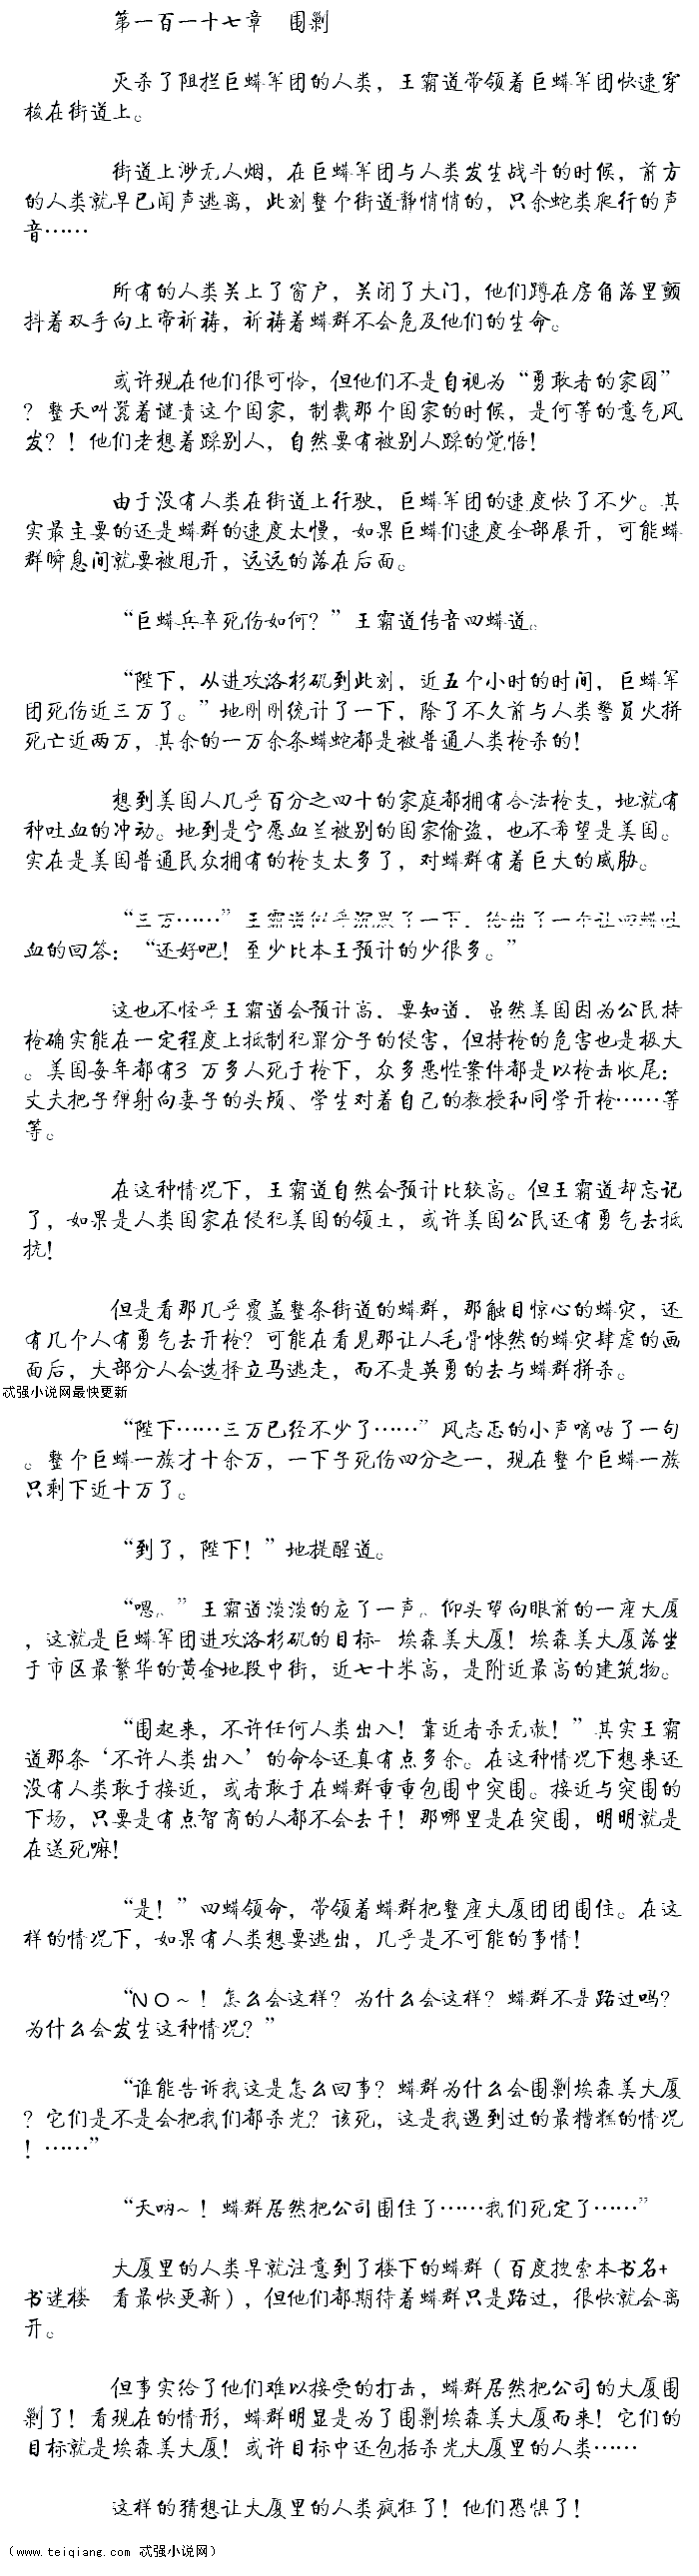 第一百一十七章　围剿
灭杀了阻拦巨蟒军团的人类，王霸道带领着巨蟒军团快速穿
梭在街道上。
街道上渺无人烟，在巨蟒军团与人类发生战斗的时候，前方
的人类就早已闻声逃离，此刻整个街道静悄悄的，只余蛇类爬行的声
音……
所有的人类关上了窗户，关闭了大门，他们蹲在房角落里颤
抖着双手向上帝祈祷，祈祷着蟒群不会危及他们的生命。
或许现在他们很可怜，但他们不是自视为“勇敢者的家园”
？整天叫嚣着谴责这个国家，制裁那个国家的时候，是何等的意气风
发？！他们老想着踩别人，自然要有被别人踩的觉悟！
由于没有人类在街道上行驶，巨蟒军团的速度快了不少。其
实最主要的还是蟒群的速度太慢，如果巨蟒们速度全部展开，可能蟒
群瞬息间就要被甩开，远远的落在后面。
“巨蟒兵卒死伤如何？”王霸道传音四蟒道。
“陛下，从进攻洛杉矶到此刻，近五个小时的时间，巨蟒军
团死伤近三万了。”地刚刚统计了一下，除了不久前与人类警员火拼
死亡近两万，其余的一万余条蟒蛇都是被普通人类枪杀的！
想到美国人几乎百分之四十的家庭都拥有合法枪支，地就有
种吐血的冲动。地到是宁愿血兰被别的国家偷盗，也不希望是美国。
实在是美国普通民众拥有的枪支太多了，对蟒群有着巨大的威胁。
“三万……”王霸道似乎沉默了一下，给出了一个让四蟒吐
血的回答：“还好吧！至少比本王预计的少很多。”
这也不怪乎王霸道会预计高，要知道，虽然美国因为公民持
枪确实能在一定程度上抵制犯罪分子的侵害，但持枪的危害也是极大
。美国每年都有3 万多人死于枪下，众多恶性案件都是以枪击收尾：
丈夫把子弹射向妻子的头颅、学生对着自己的教授和同学开枪……等
等。
在这种情况下，王霸道自然会预计比较高。但王霸道却忘记
了，如果是人类国家在侵犯美国的领土，或许美国公民还有勇气去抵
抗！
但是看那几乎覆盖整条街道的蟒群，那触目惊心的蟒灾，还
有几个人有勇气去开枪？可能在看见那让人毛骨悚然的蟒灾肆虐的画
面后，大部分人会选择立马逃走，而不是英勇的去与蟒群拼杀。
忒强小说网最快更新
“陛下……三万已经不少了……”风忐忑的小声嘀咕了一句
。整个巨蟒一族才十余万，一下子死伤四分之一，现在整个巨蟒一族
只剩下近十万了。
“到了，陛下！”地提醒道。
“嗯。”王霸道淡淡的应了一声。仰头望向眼前的一座大厦
，这就是巨蟒军团进攻洛杉矶的目标- 埃森美大厦！埃森美大厦落坐
于市区最繁华的黄金地段中街，近七十米高，是附近最高的建筑物。
“围起来，不许任何人类出入！靠近者杀无赦！”其实王霸
道那条‘不许人类出入’的命令还真有点多余。在这种情况下想来还
没有人类敢于接近，或者敢于在蟒群重重包围中突围。接近与突围的
下场，只要是有点智商的人都不会去干！那哪里是在突围，明明就是
在送死嘛！
“是！”四蟒领命，带领着蟒群把整座大厦团团围住。在这
样的情况下，如果有人类想要逃出，几乎是不可能的事情！
“NO～！怎么会这样？为什么会这样？蟒群不是路过吗？
为什么会发生这种情况？”
“谁能告诉我这是怎么回事？蟒群为什么会围剿埃森美大厦
？它们是不是会把我们都杀光？该死，这是我遇到过的最糟糕的情况
！……”
“天呐～！蟒群居然把公司围住了……我们死定了……”
大厦里的人类早就注意到了楼下的蟒群（百度搜索本书名+
书迷楼　看最快更新），但他们都期待着蟒群只是路过，很快就会离
开。
但事实给了他们难以接受的打击，蟒群居然把公司的大厦围
剿了！看现在的情形，蟒群明显是为了围剿埃森美大厦而来！它们的
目标就是埃森美大厦！或许目标中还包括杀光大厦里的人类……
这样的猜想让大厦里的人类疯狂了！他们恐惧了！
（www.teiqiang.com 忒强小说网）